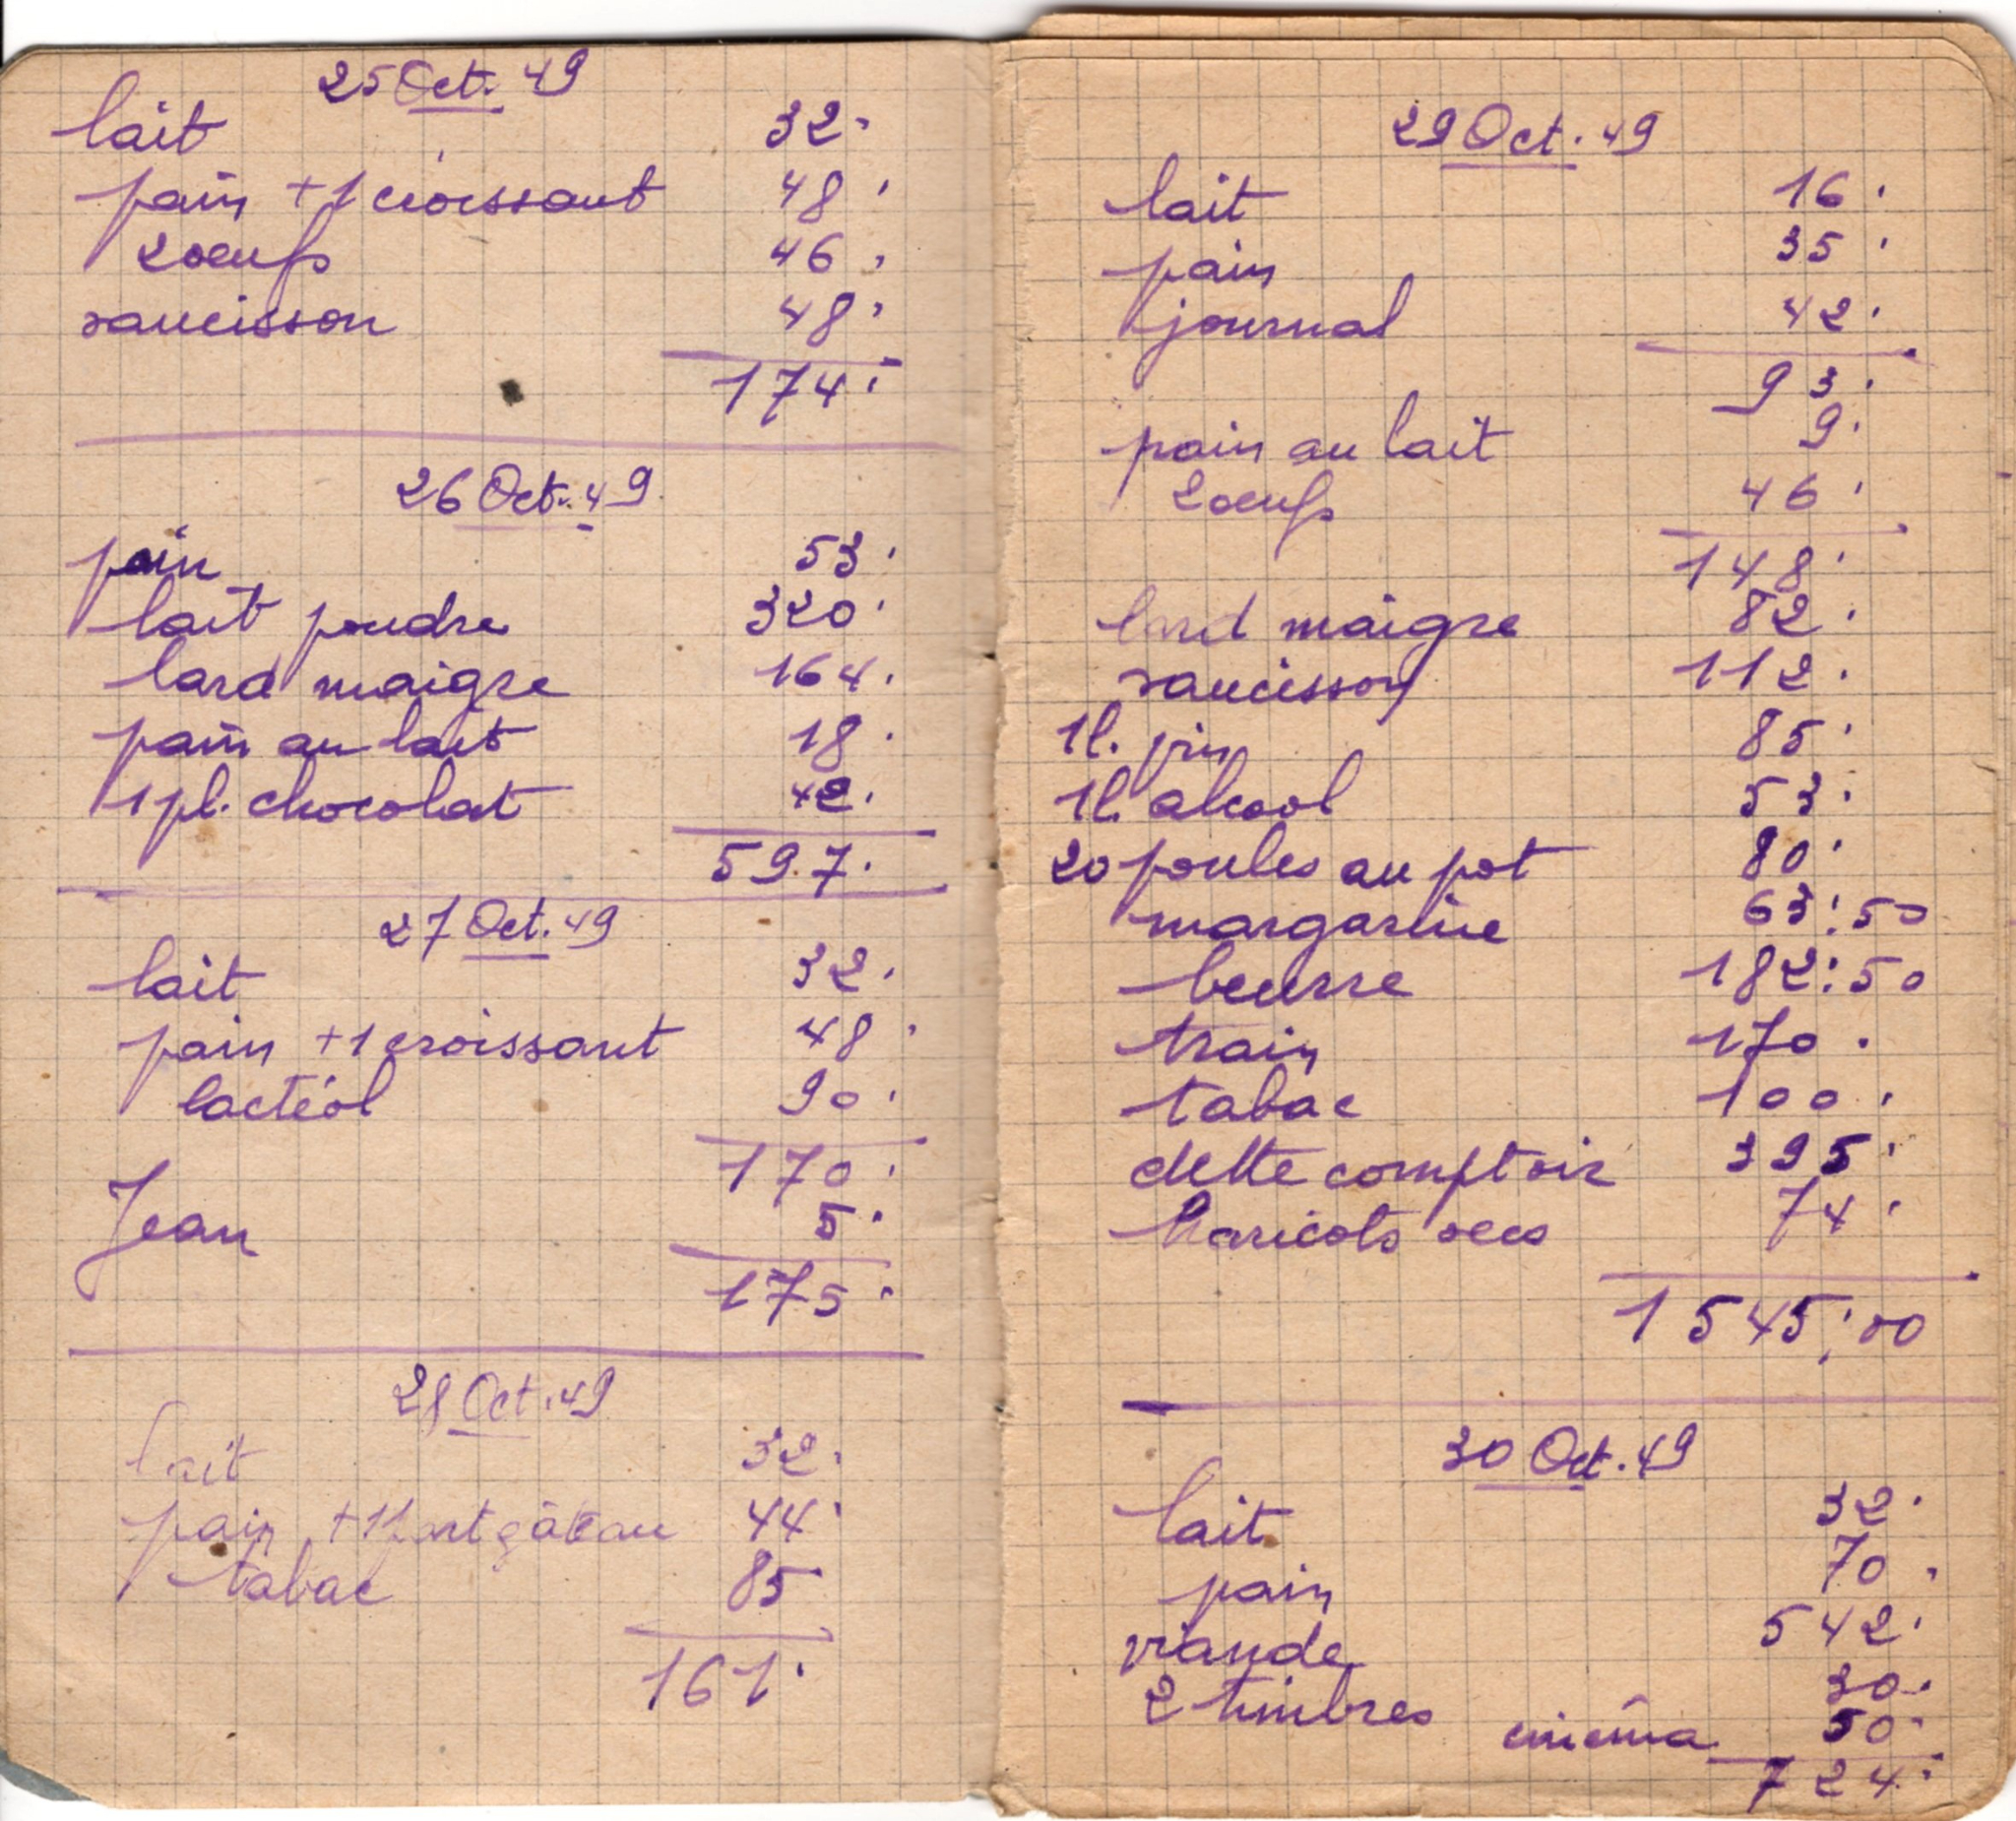 25 Oct. 49
lait 32.
pain + 1 croissant 48.
2 oeufs 46.
saucisson 48.
174.
26 Oct. 49
pain 53.
lait poudre 320.
lard maigre 164.
pain au lait 18.
1 pl. chocolat 42.
597.
27 Oct. 49
lait 32.
pain + 1 croissant 48.
lactéol 90.
170.
Jean 5.
175.
28 Oct. 49
lait 32.
pain + 1 part gâteau 44.
tabac 85
161.
29 Oct. 49
lait 16.
pain 35.
journal 42.
93.
pain au lait 9.
2 oeufs 46.
148.
lard maigre 82.
saucisson 112.
1l. vin 85.
1l. alcool 53.
20 poules au pot 80.
margarine 63:50
beurre 182:50
train 170.
tabac 100.
dette comptoir 395.
haricots secs 74.
1545:00
30 Oct. 49
lait 32.
pain 70.
viande 542.
2 timbres 30.
cinéma 50.
724.